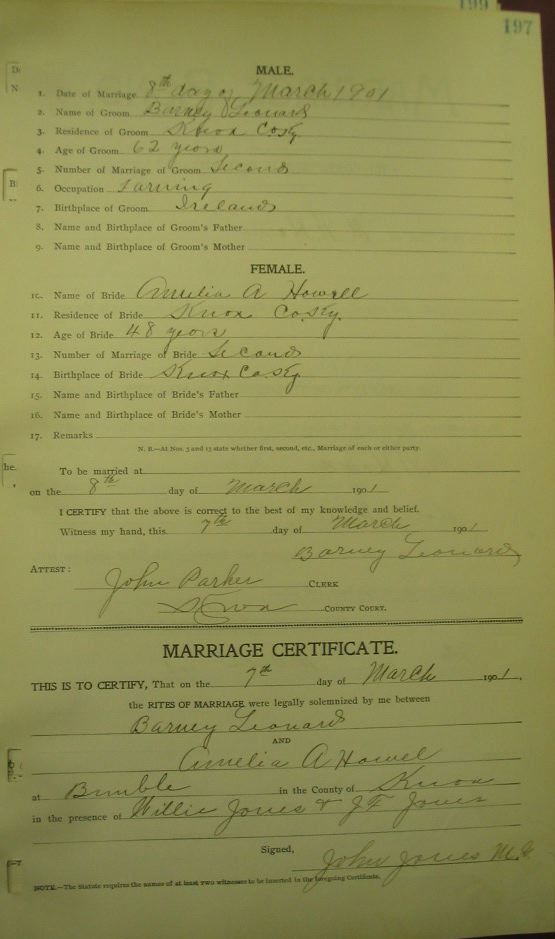 199
197
MALE.
1. Date of Marriage 8th day of March 1901
2. Name of Groom Barney Leonard
3. Residence of Groom Knox Co Ky
4. Age of Groom 62 years
5. Number of Marriage of Groom Second
6. Occupation Farming
7. Birthplace of Groom Ireland
8. Name and Birthplace of Groom's Father
9. Name and Birthplace of Groom's Mother
FEMALE.
10. Name of Bride Amelia A Howell
11. Residence of Bride Knox Co Ky.
12. Age of Bride 48 years
13. Number of Marriage of Bride Second
14. Birthplace of Bride Knox Co Ky
15. Name and Birthplace of Bride's Father
16. Name and Birthplace of Bride's Mother
17. Remarks
N. B.—At Nos. 5 and 13 state whether first, second, etc., Marriage of each or either party.
he.
To be married at
on the 8th day of March 1901
I CERTIFY that the above is correct to the best of my knowledge and belief.
Witness my hand, this 7th day of March 1901
Barney Leonard
ATTEST:
John Parker CLERK
Knox COUNTY COURT.
MARRIAGE CERTIFICATE.
THIS IS TO CERTIFY, That on the 7th day of March 1901,
the RITES OF MARRIAGE were legally solemnized by me between
Barney Leonard
AND
Amelia A Howel
at Bimble in the County of Knox
in the presence of Willie Jones & J F Jones
Signed, John Jones M.G
NOTE.—The Statute requires the names of at least two witnesses to be inserted in the foregoing Certificate.